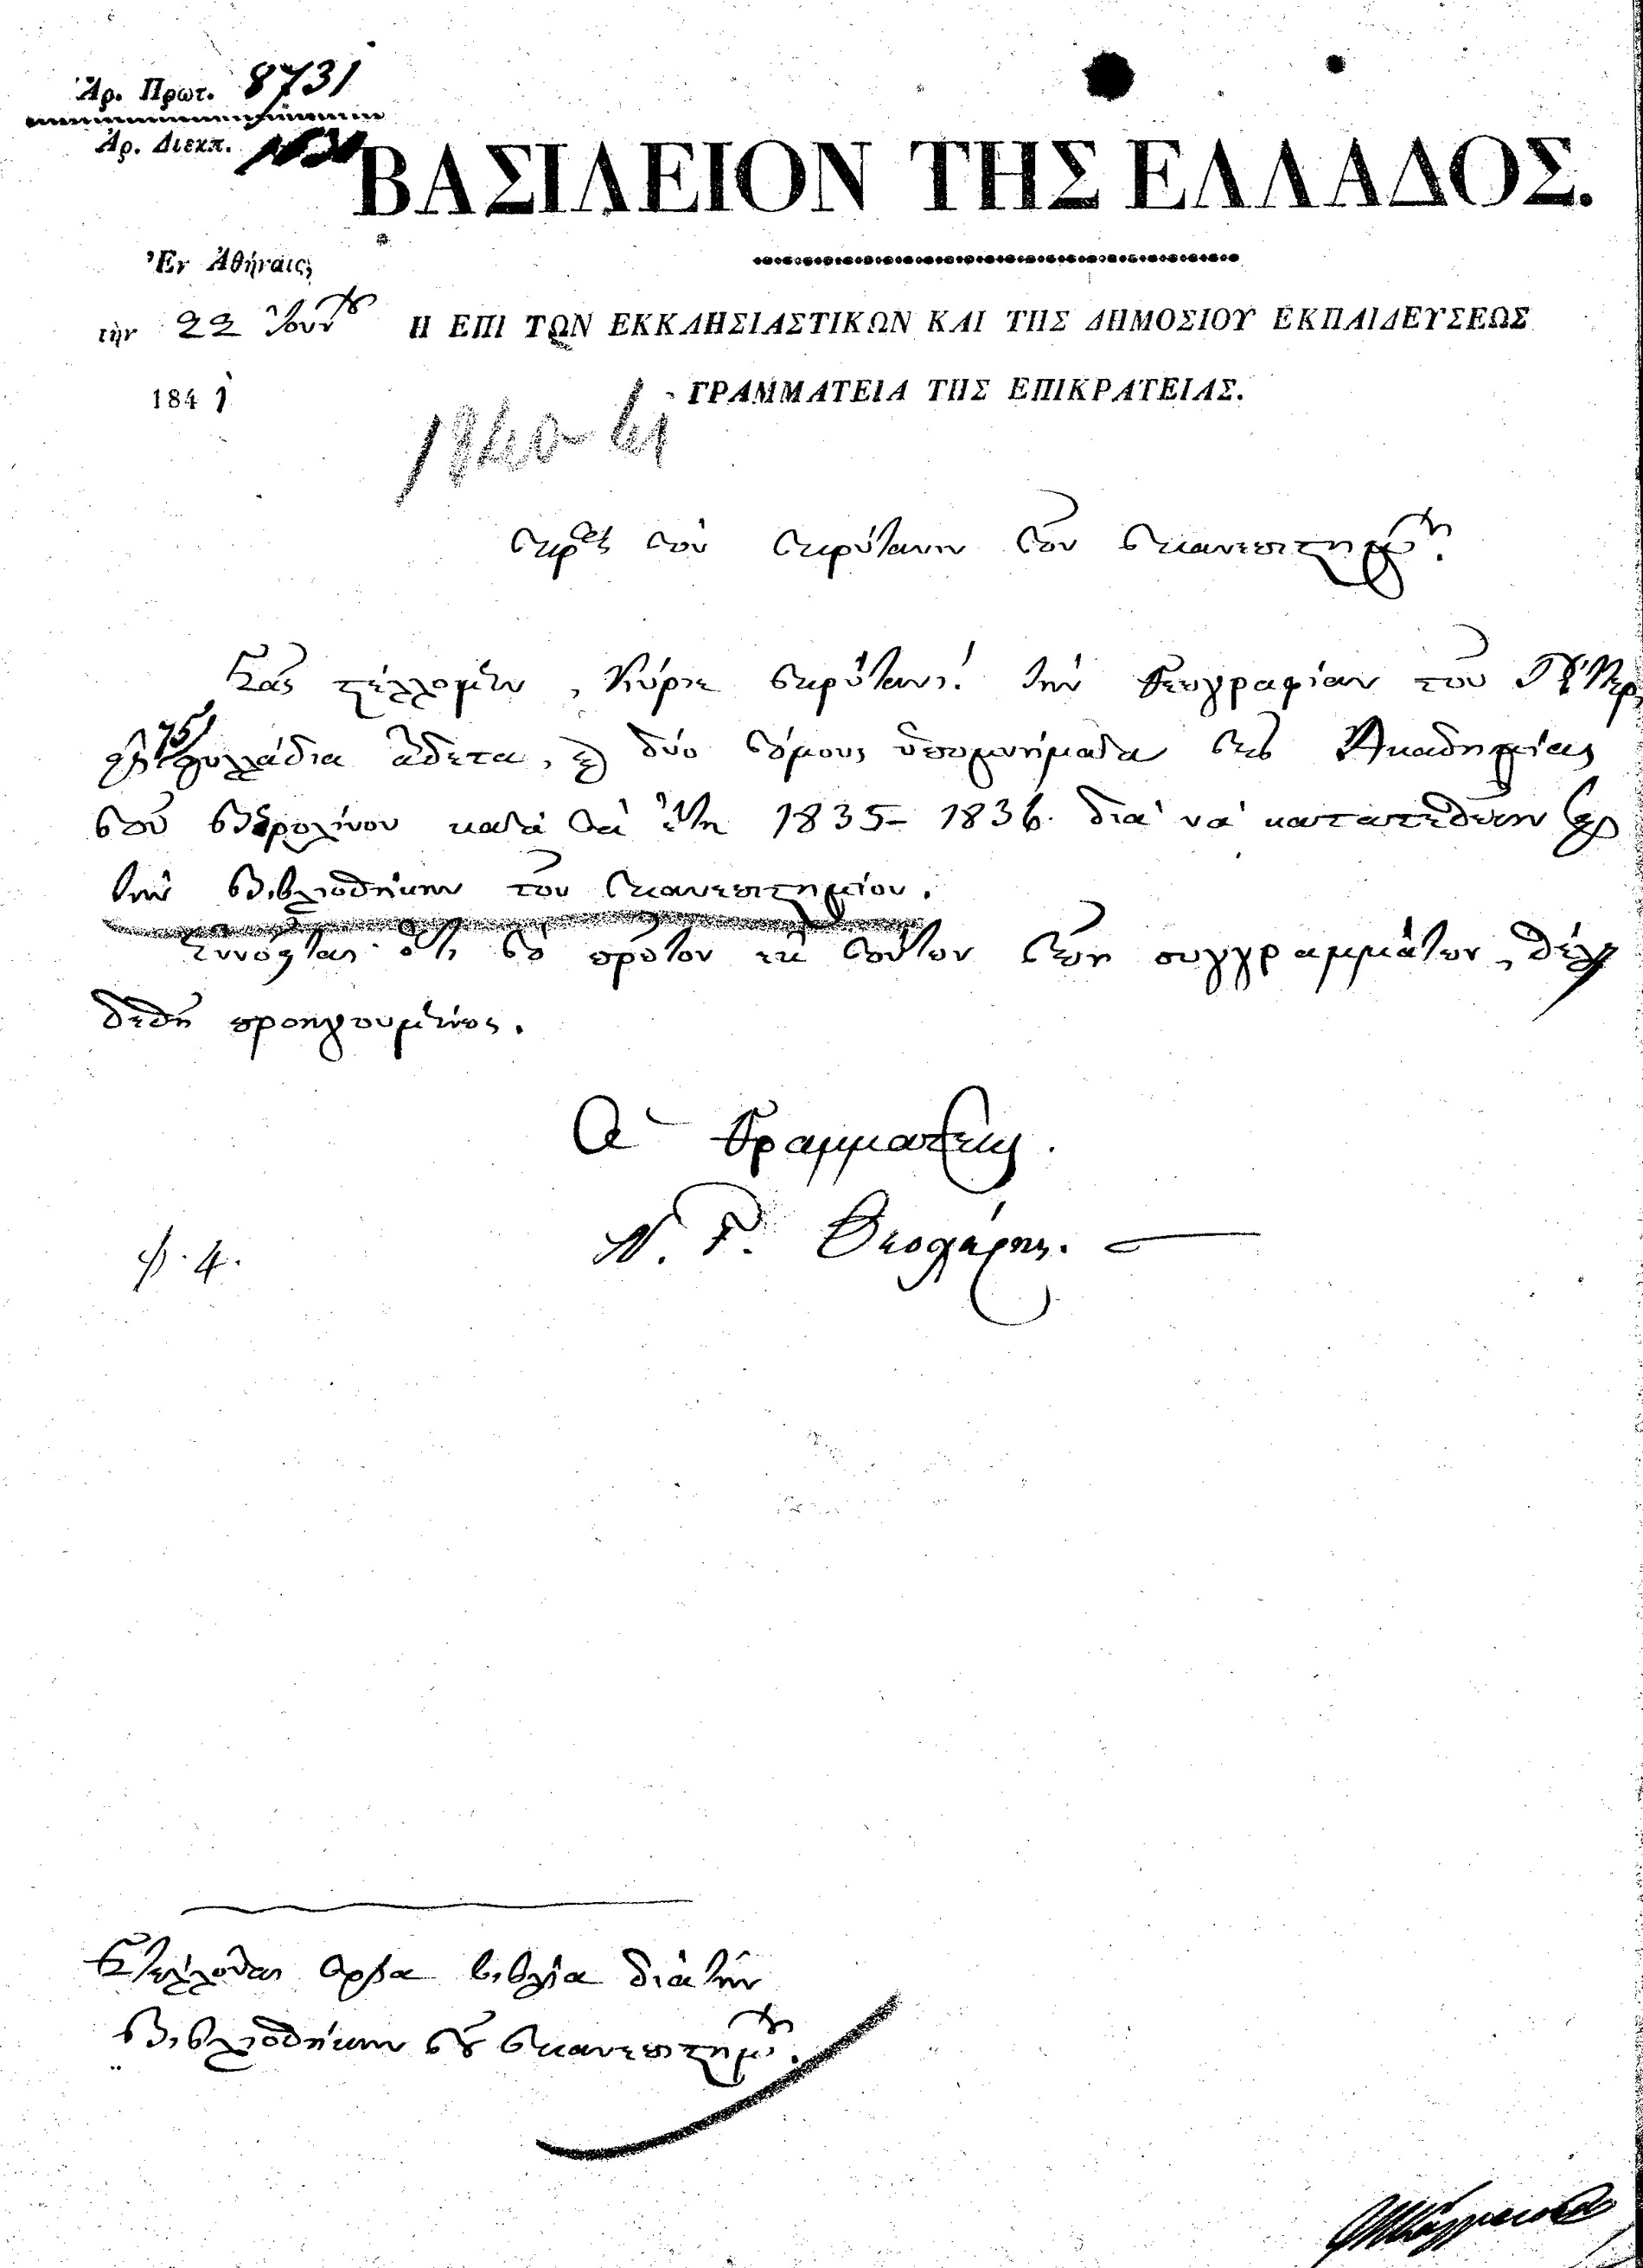 Ἀρ. Πρωτ. 8731
Ἀρ. Διεκπ.
ΒΑΣΙΛΕΙΟΝ ΤΗΣ ΕΛΛΑΔΟΣ.
Ἐν Ἀθήναις,
τὴν 22 Ἰουν
1841
Η ΕΠΙ ΤΩΝ ΕΚΚΛΗΣΙΑΣΤΙΚΩΝ ΚΑΙ ΤΗΣ ΔΗΜΟΣΙΟΥ ΕΚΠΑΙΔΕΥΣΕΩΣ
ΓΡΑΜΜΑΤΕΙΑ ΤΗΣ ΕΠΙΚΡΑΤΕΙΑΣ.
1840-41
Πρὸς τὸν Πρύτανιν τοῦ Πανεπιστημ.
Σᾶς στέλλομεν, Κύριε Πρύτανι! τὴν Γεωγραφίαν τοῦ
75 φυλλάδια ἄδετα, δύο τόμους ὑπομνήματα τῆς Ἀκαδημίας
τοῦ Βερολίνου κατὰ τὰ ἔτη 1835-1836. διὰ νὰ κατατεθῶσιν εἰς
τὴν Βιβλιοθήκην τοῦ Πανεπιστημίου.
Ἐννοεῖται ὅτι τὸ πρῶτον ἐκ τούτων τῶν συγγραμμάτων, θέλει
δεθῆ προηγουμένως.
Ὁ Γραμματεὺς.
Ν. Γ. Θεοχάρης.
φ. 4.
Στέλλονται βιβλία διὰ τὴν
Βιβλιοθήκην τοῦ Πανεπιστημ.